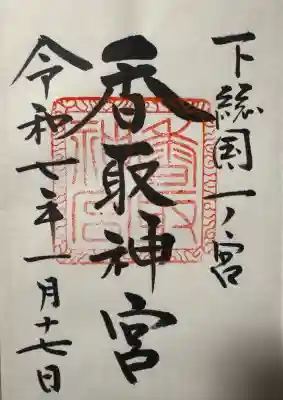 下総国一ノ宮
香取神宮
令和七年一月十七日